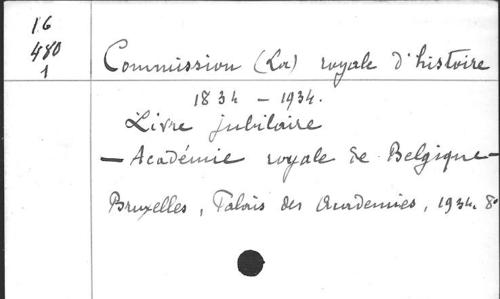 16
480
1
Commission (La) royale d'histoire
1834 - 1934.
Livre jubilaire
- Académie royale de Belgique -
Bruxelles, Palais des Académies, 1934. 8°